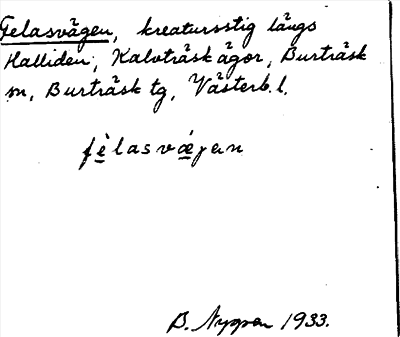 Felasvägen, kreatursstig längs
Halliden, Kalvträsk ägor, Burträsk
sn, Burträsk tg, Västerb. l.
fèlasvægan
B. Nygren 1933.